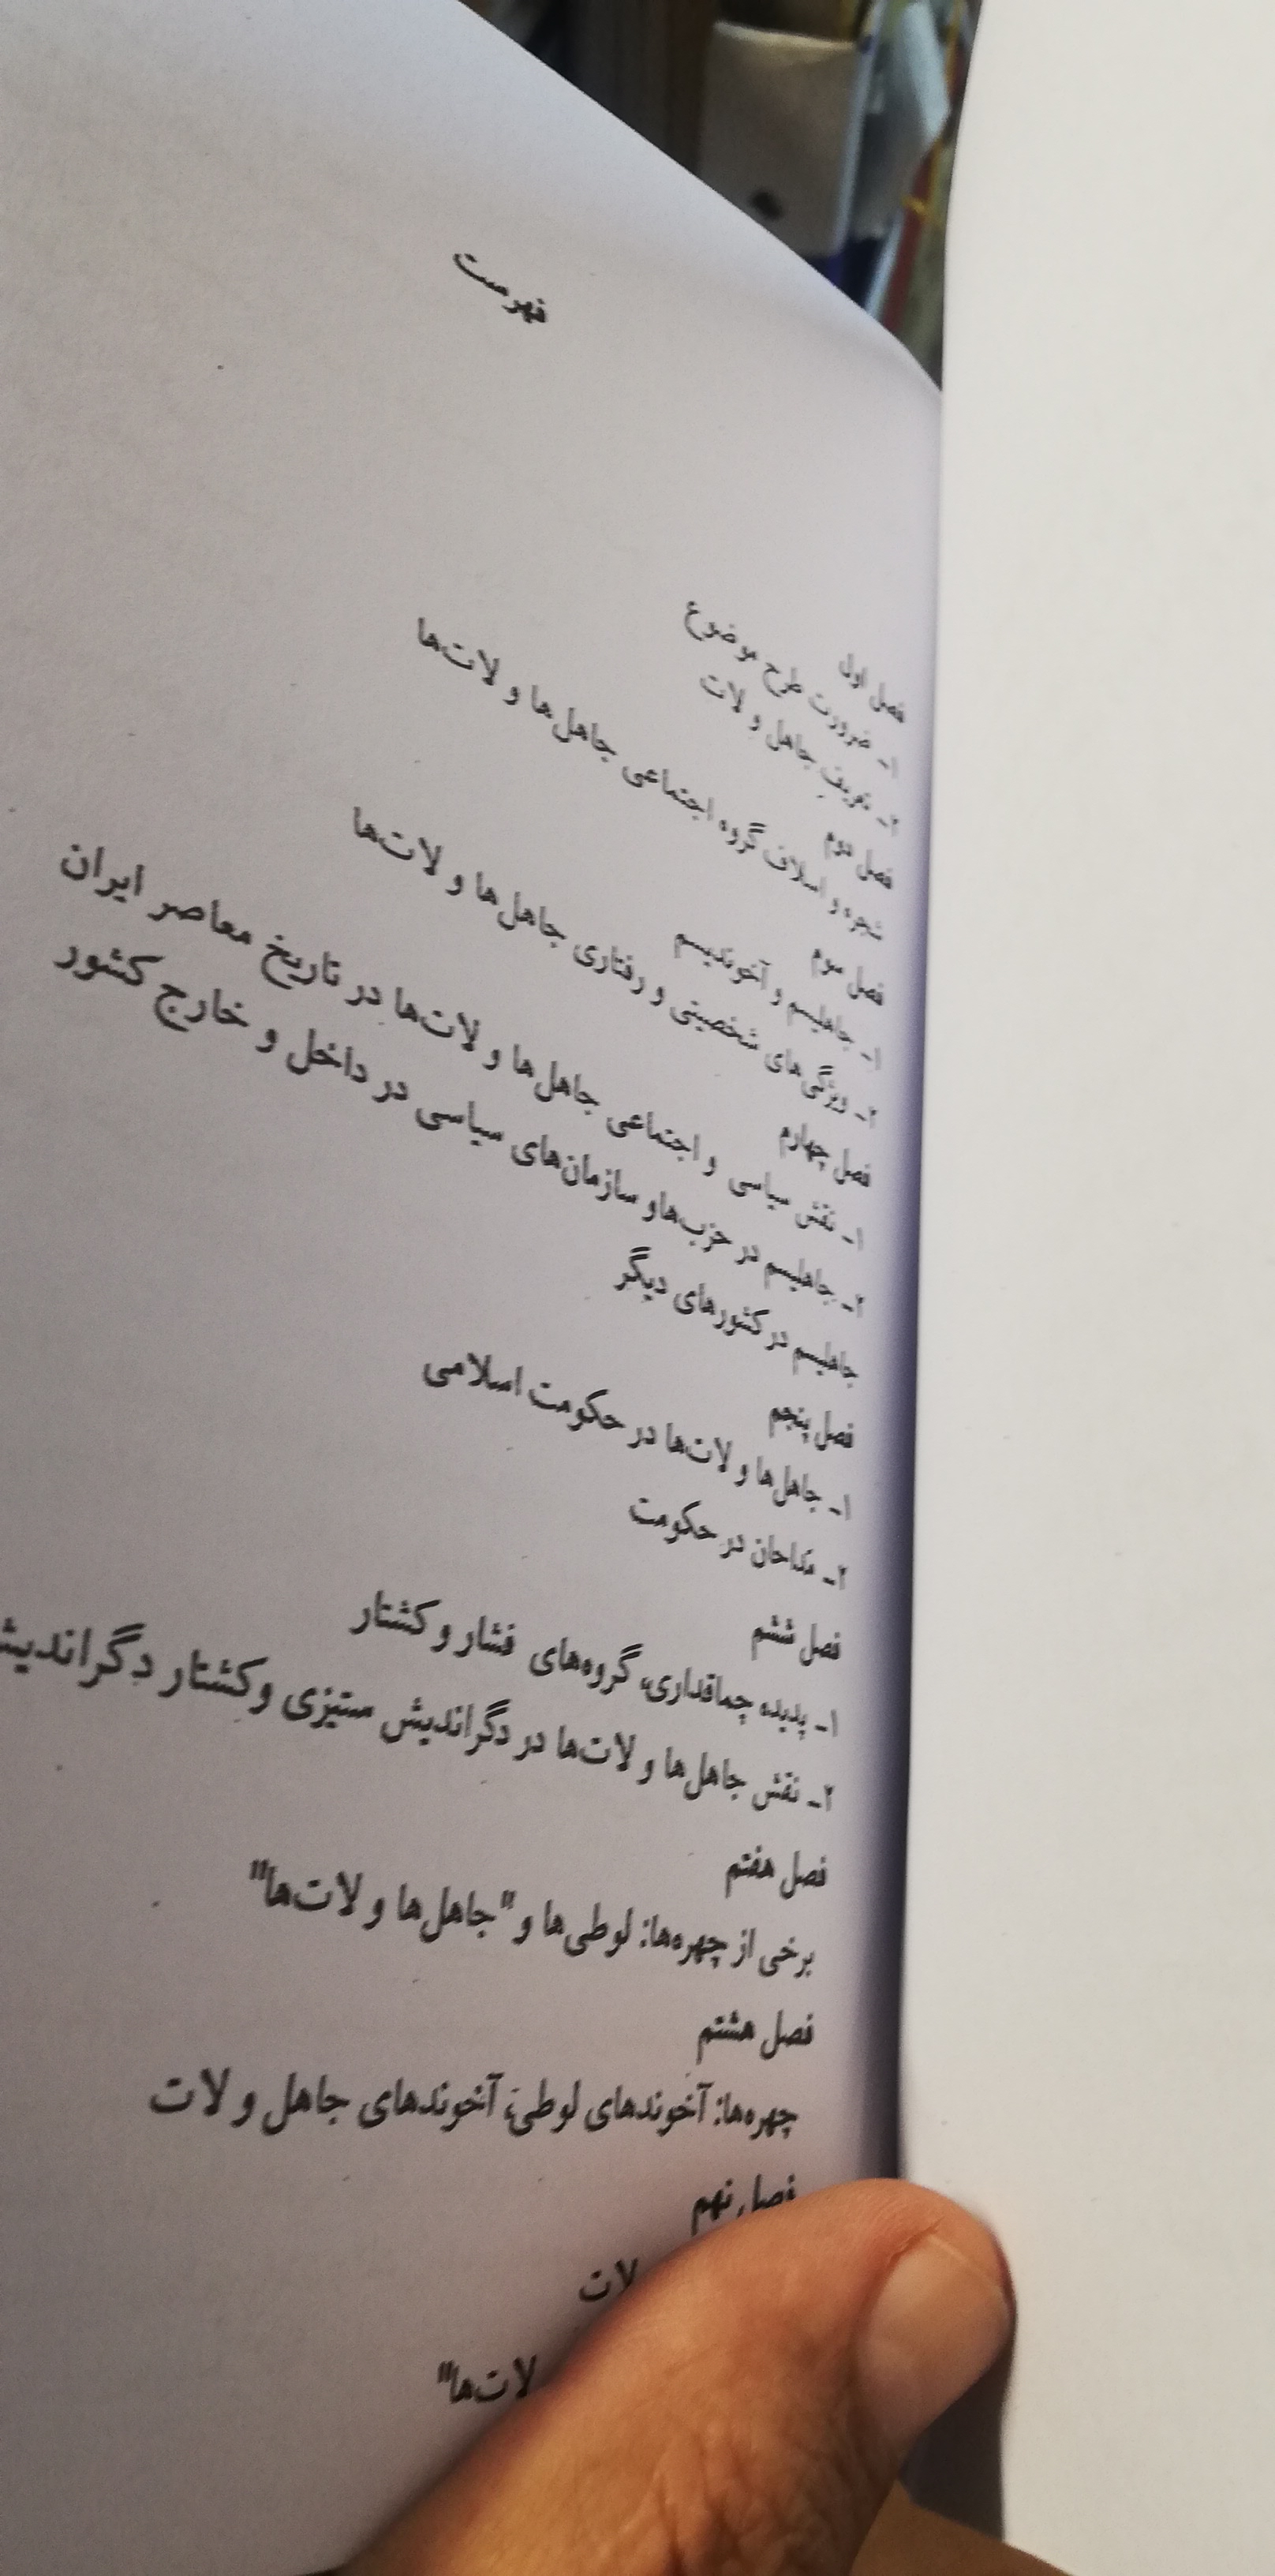 فهرست
فصل اول
۱ـ ضرورت طرح موضوع
۲ـ تعریف جاهل و لات
فصل دوم
شجره و اسلاف گروه اجتماعی جاهل‌ها و لات‌ها
فصل سوم
۱ـ جاهلیسم و آخوندیسم
۲ـ ویژگی‌های شخصیتی و رفتاری جاهل‌ها و لات‌ها
فصل چهارم
۱ـ نقش سیاسی و اجتماعی جاهل‌ها و لات‌ها در تاریخ معاصر ایران
۲ـ جاهلیسم در حزب‌ها و سازمان‌های سیاسی در داخل و خارج کشور
جاهلیسم در کشورهای دیگر
فصل پنجم
۱ـ جاهل‌ها و لات‌ها در حکومت اسلامی
۲ـ مداحان در حکومت
فصل ششم
۱ـ پدیده چماقداری، گروه‌های فشار و کشتار
۲ـ نقش جاهل‌ها و لات‌ها در دگراندیش ستیزی و کشتار
فصل هفتم
برخی از چهره‌ها: لوطی‌ها و "جاهل‌ها و لات‌ها"
فصل هشتم
چهره‌ها: آخوندهای لوطی، آخوندهای جاهل و لات
فصل نهم
لات
لات‌ها"